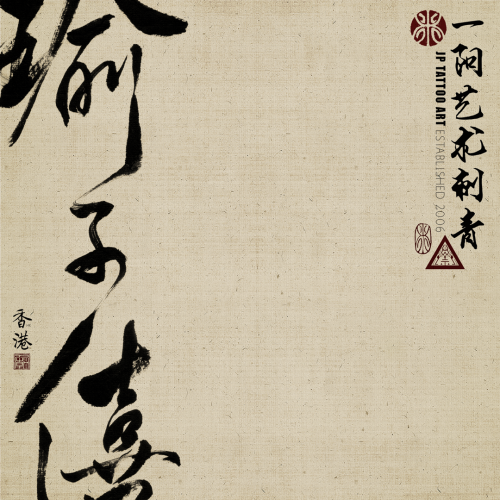 一阳艺术刺青
JP TATTOO ART ESTABLISHED 2006
瑜子僖
香港